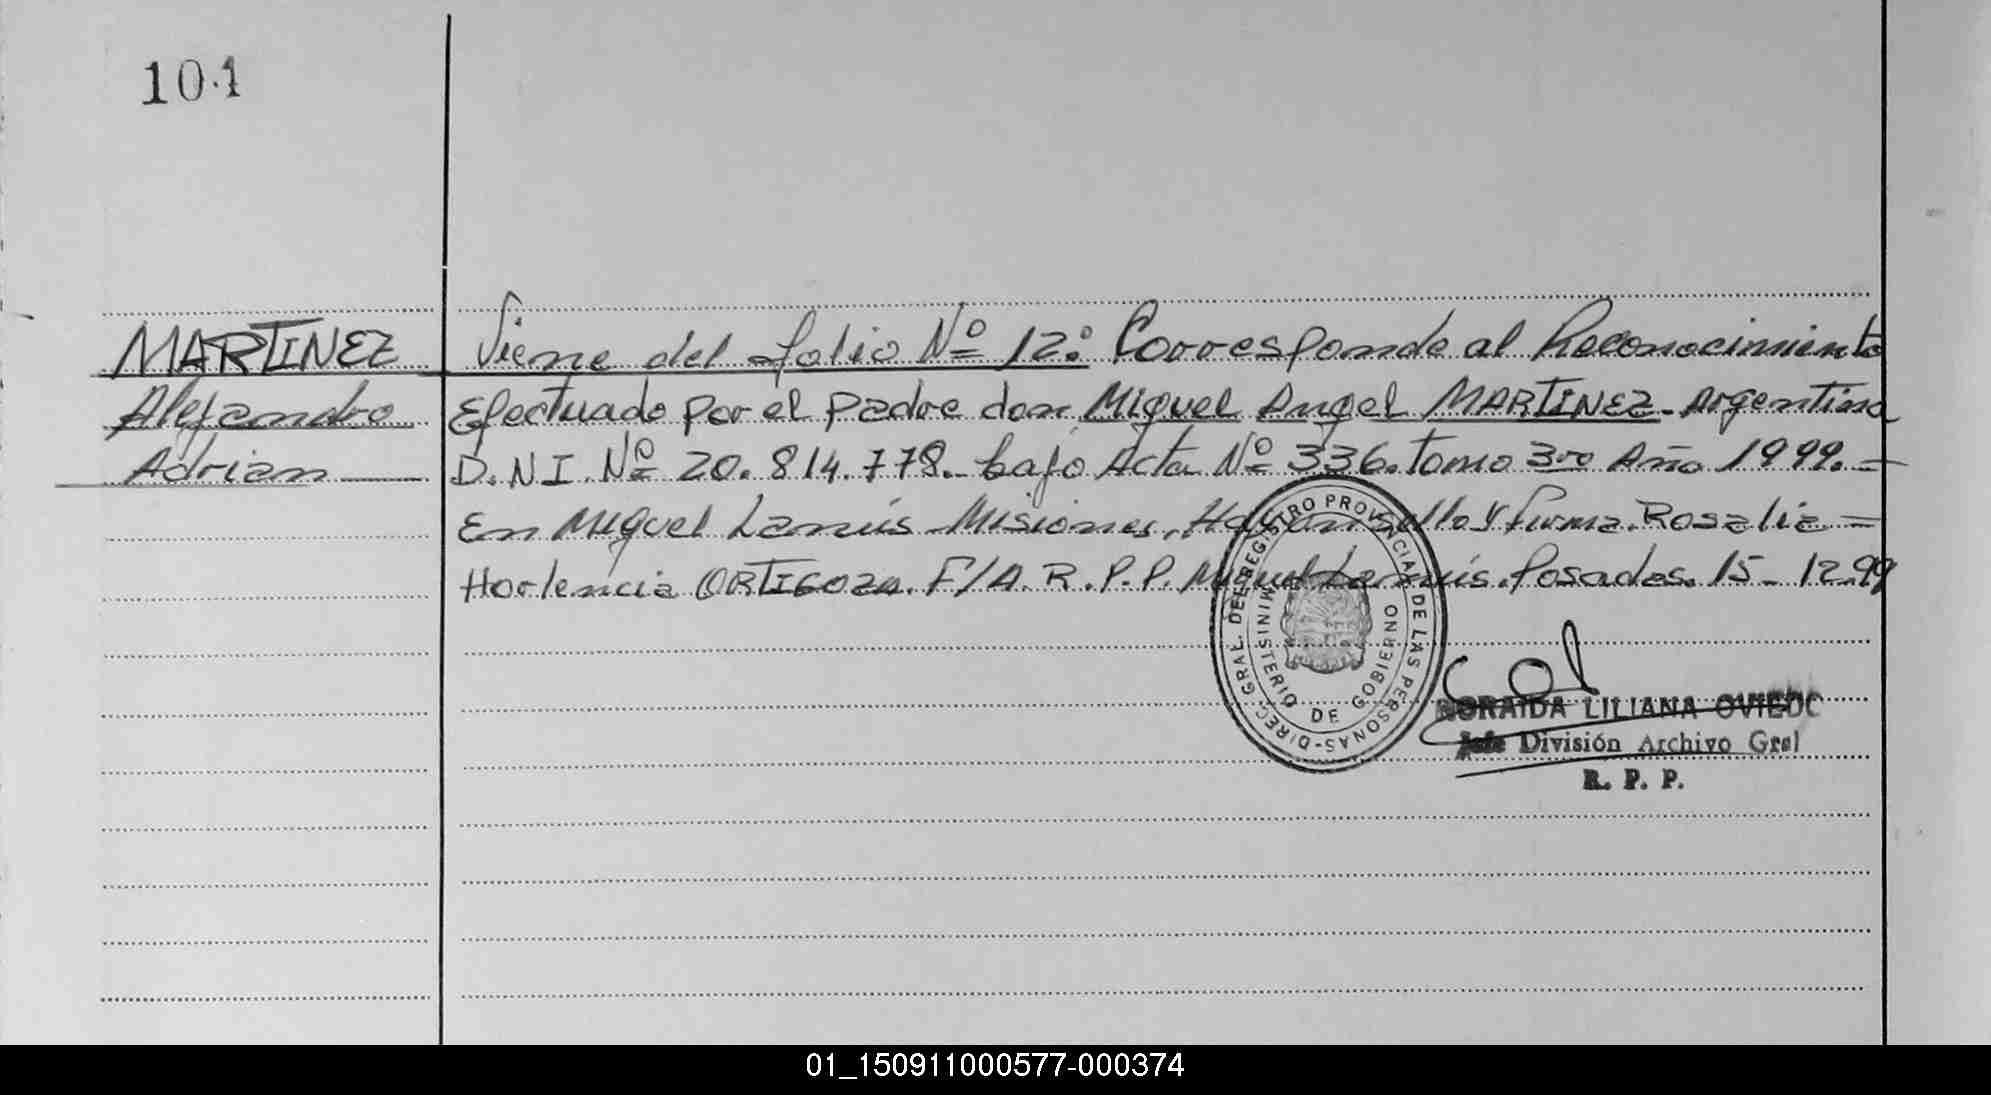 101
MARTINEZ
Alejandro
Adrian
Viene del folio Nº 12. Corresponde al Reconocimiento
Efectuado por el padre don Miguel Angel MARTINEZ - Argentino
D.N.I. Nº 20.814.778.- bajo Acta Nº 336. Tomo 3ro Año 1999.-
En Miguel Lanús - Misiones, Hay un sello y firma. Rosalia =
Hortencia ORTIGOZA. F/A.R.P.P. Miguel Lanús. Posadas. 15-12.99
DIREC. GRAL. DEL REGISTRO PROVINCIAL DE LAS PERSONAS-
MINISTERIO DE GOBIERNO
NORAIDA LILIANA OVIEDO
Jefe División Archivo Gral
R. P. P.
01_150911000577-000374